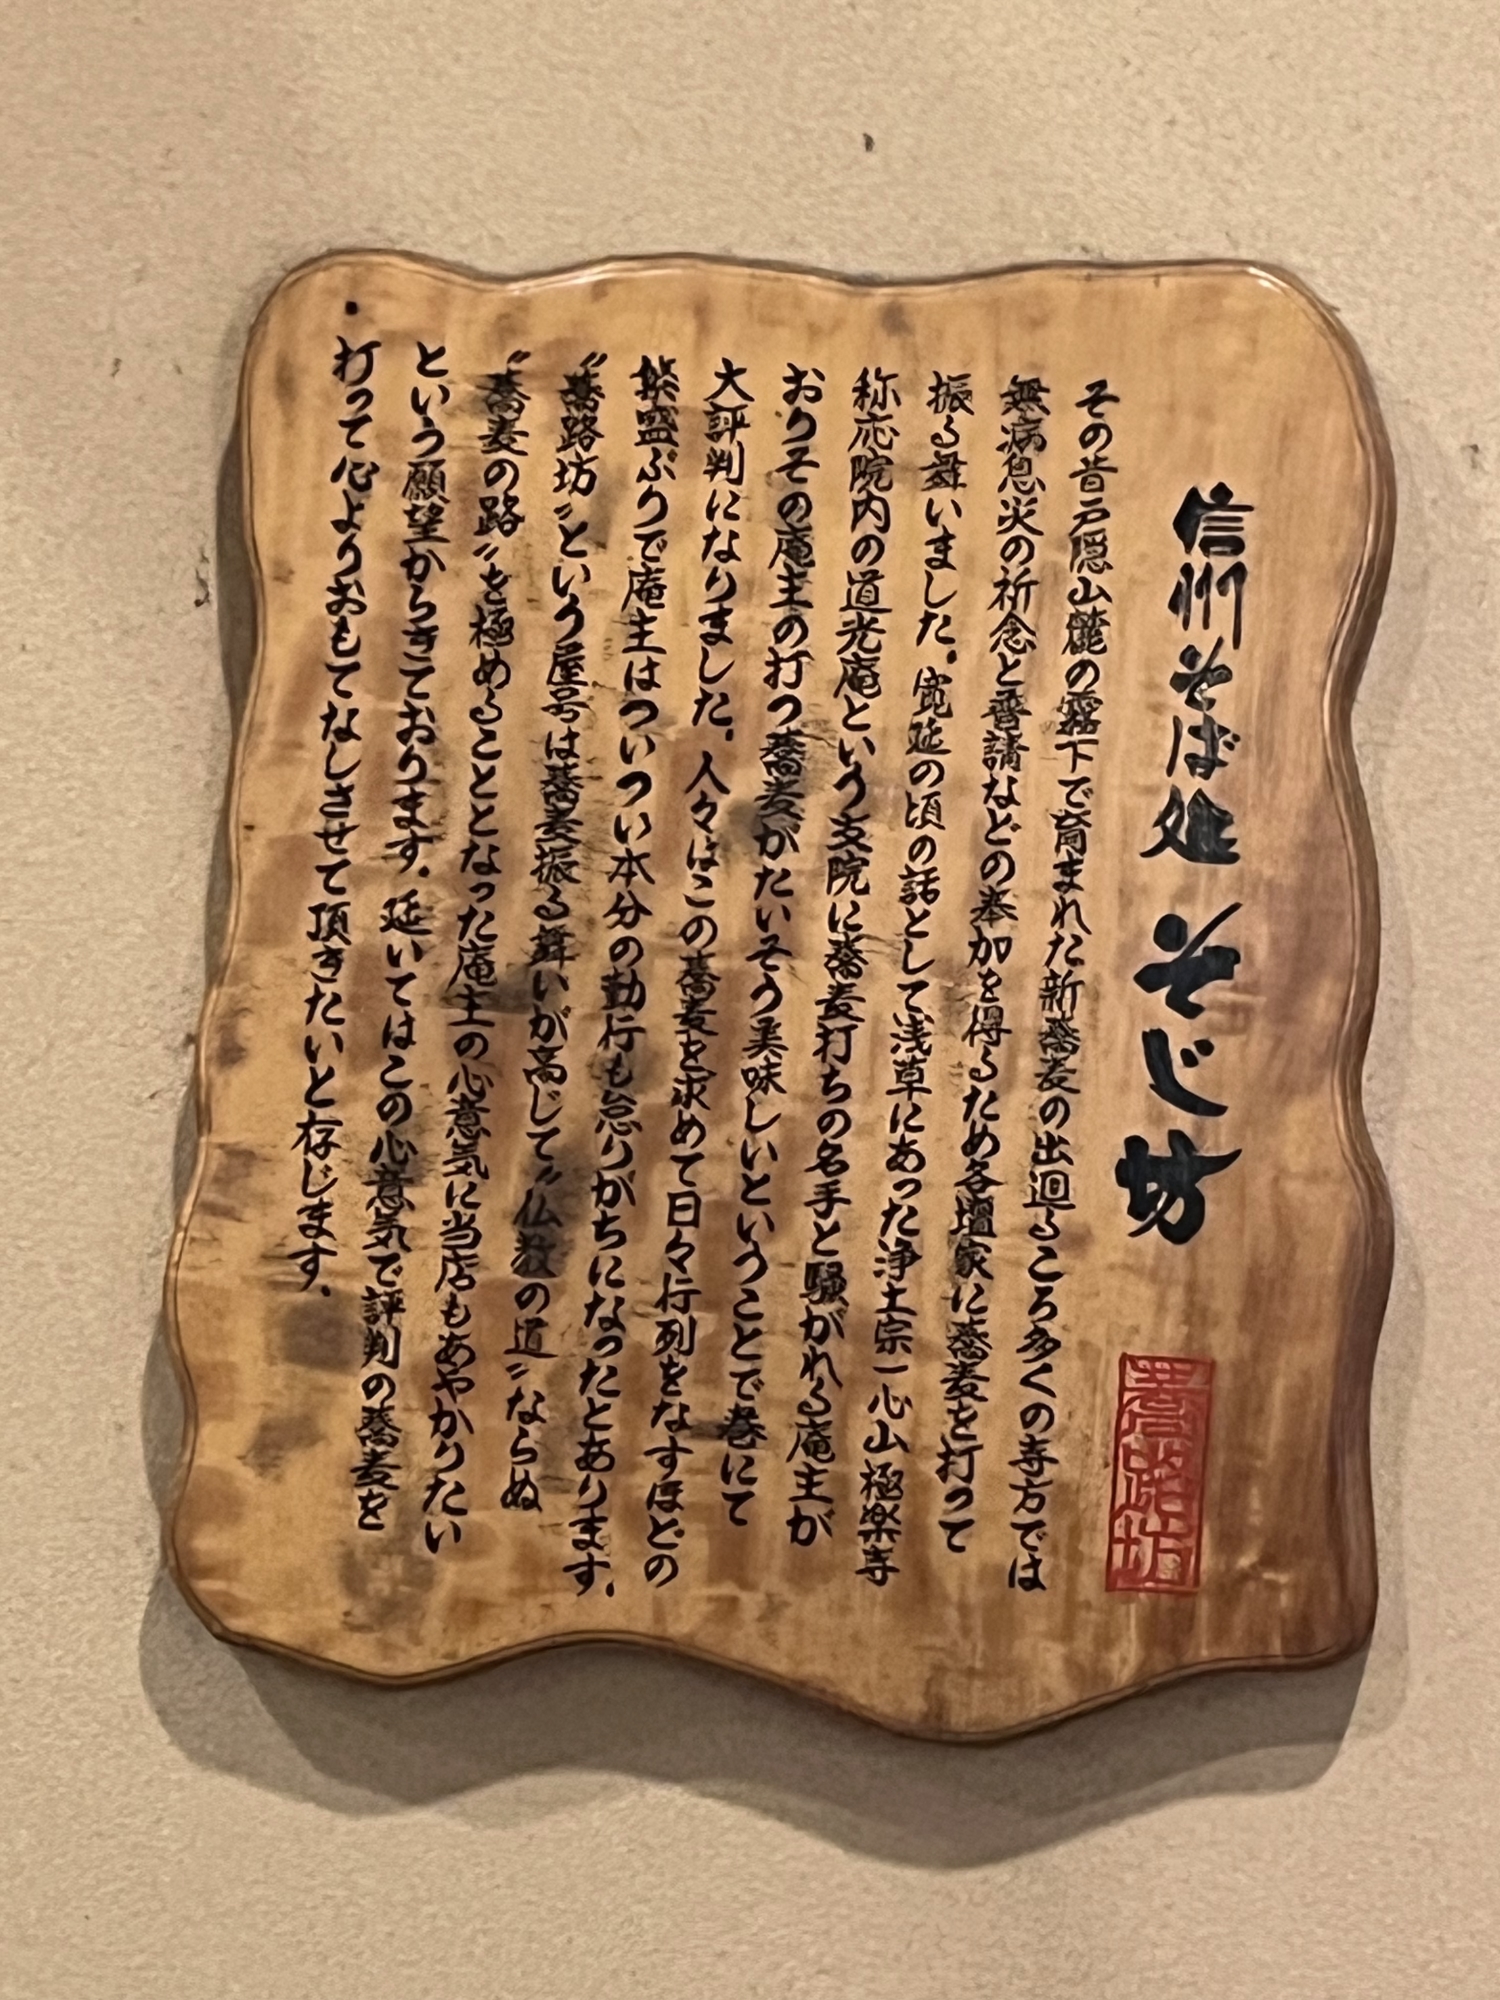 信州そば処 そじ坊
蕎路坊
その昔戸隠山麓の霧下で育まれた新蕎麦の出廻るころ多くの寺方では
無病息災の祈念と普請などの奉加を得るため各壇家に蕎麦を打って
振る舞いました。寛延の頃の話として浅草にあった浄土宗一心山極楽寺
称応院内の道光庵という支院に蕎麦打ちの名手と騒がれる庵主が
おりその庵主の打つ蕎麦がたいそう美味しいということで巷にて
大評判になりました。人々はこの蕎麦を求めて日々行列をなすほどの
繁盛ぶりで庵主はついつい本分の勤行も怠りがちになったとあります。
〝蕎路坊〟という屋号は蕎麦振る舞いが高じて〝仏教の道〟ならぬ
〝蕎麦の路〟を極めることとなった庵主の心意気に当店もあやかりたい
という願望からきております。延いてはこの心意気で評判の蕎麦を
打って心よりおもてなしさせて頂きたいと存じます。